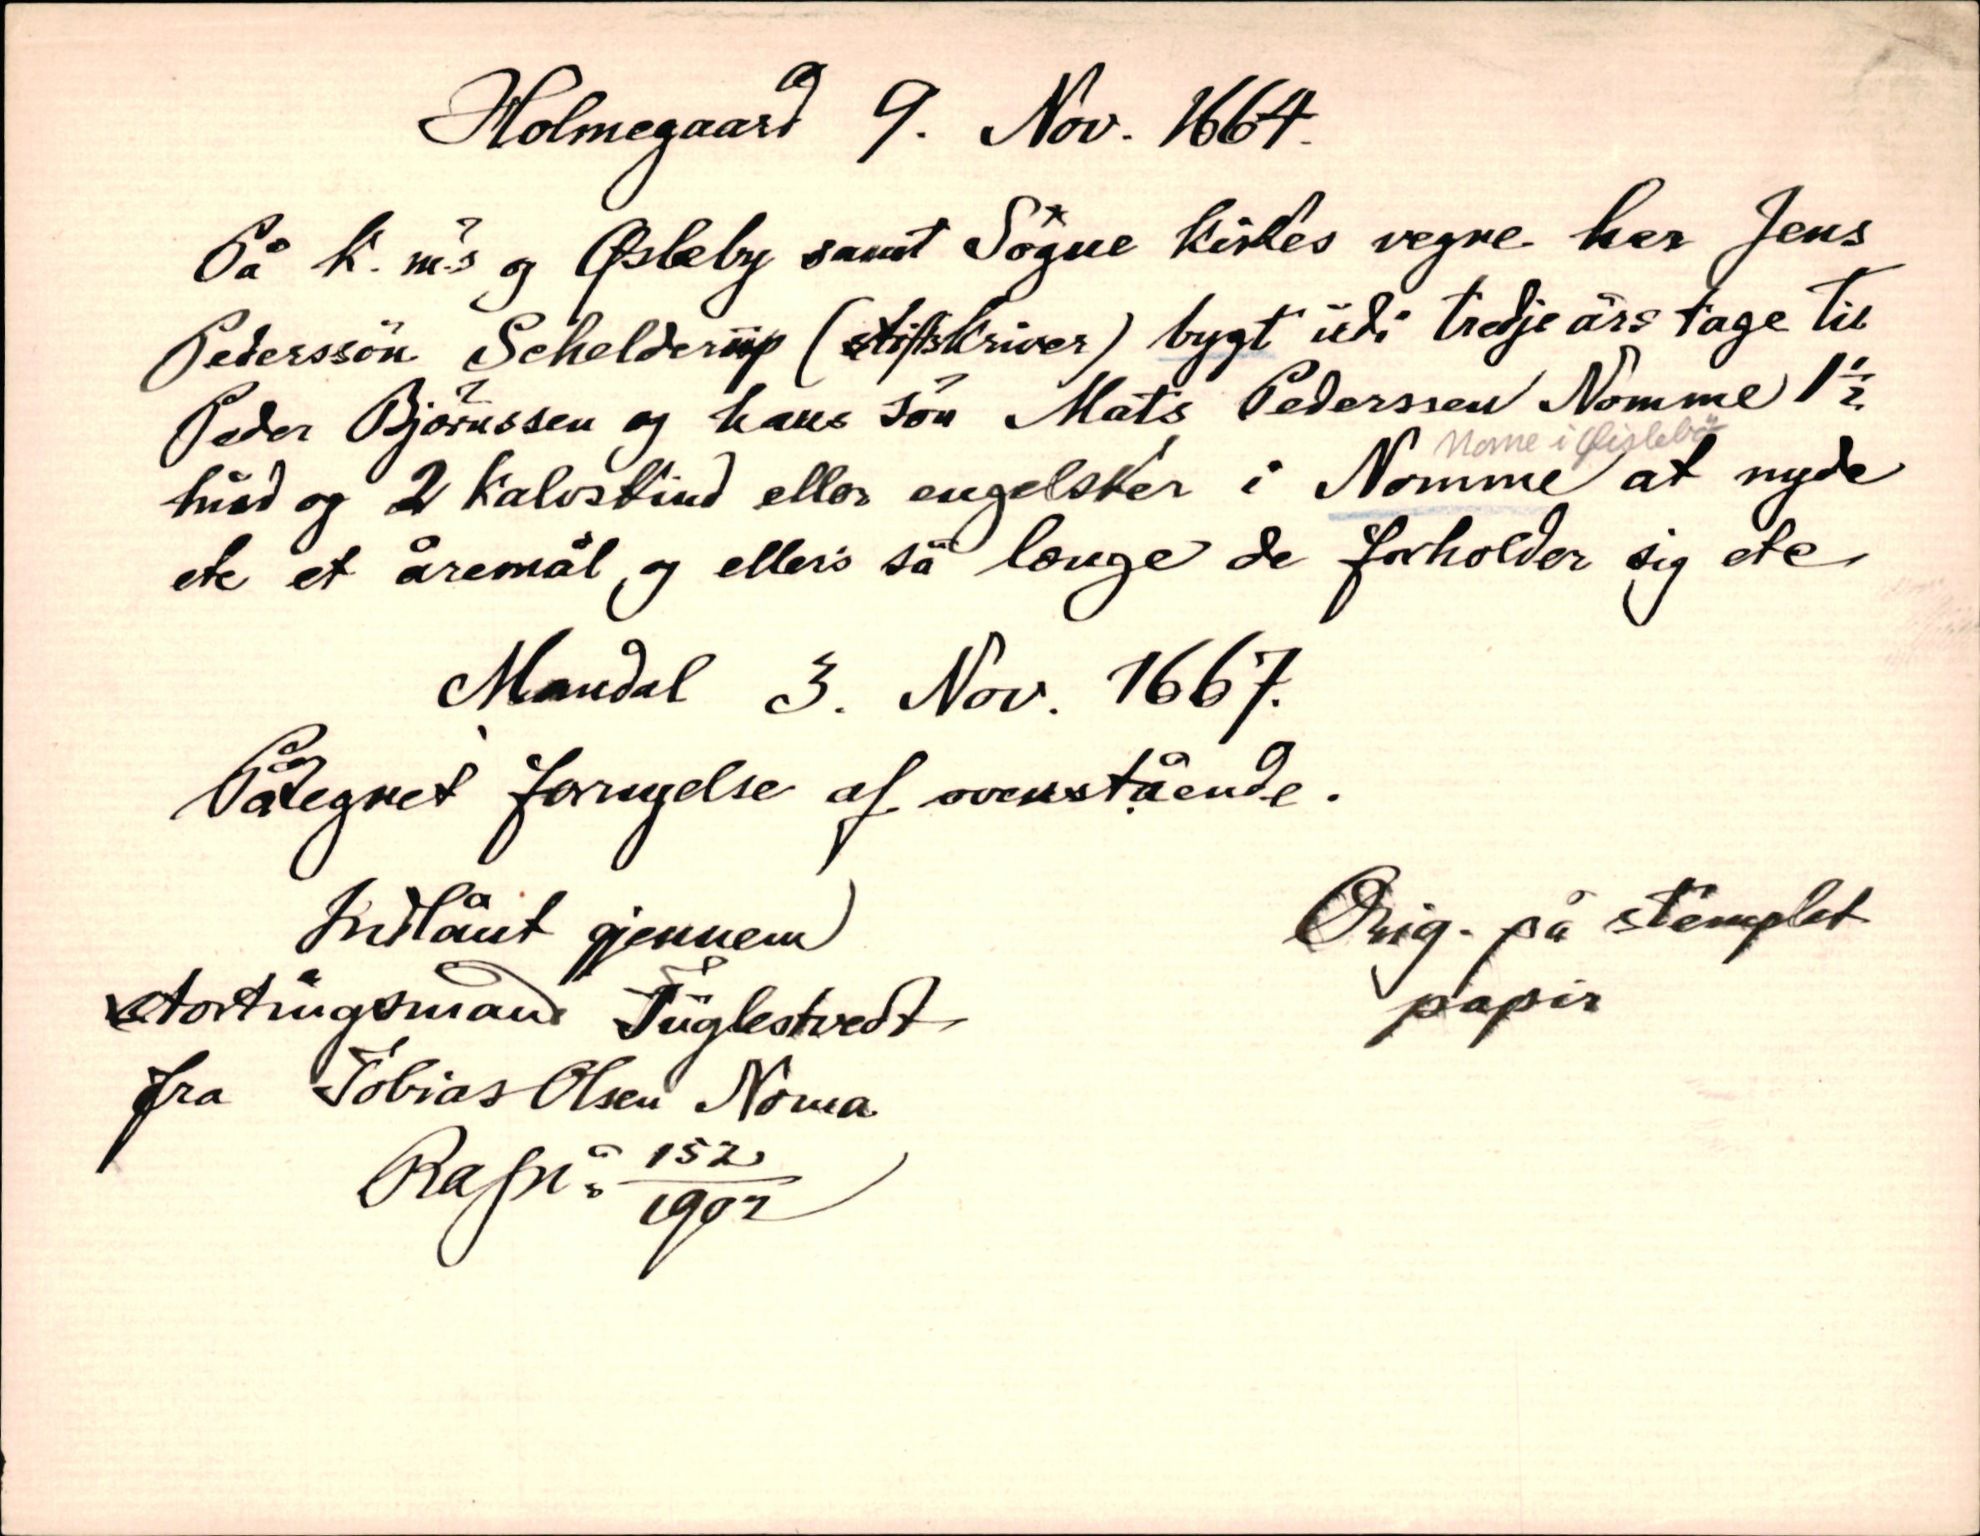 Holmegaard 9. Nov. 1664.
På k. m.s og Øsleby samt Sögne kirkes vegne har Jens
Pederssön Schelderup (stiftskriver) bygt udi tredje års tage til
Peder Björnssen og hans sön Mats Pederssen Nomme 1½
hud og 2 kalvskind eller engelsker i Nomme at nyde
Nome i Øislebö
etc et åremål og ellers så længe de forholder sig etc
Mandal 3. Nov. 1667.
Påtegnet fornyelse af ovenstående.
Indlånt gjennem
stortingsmand Fuglestvedt
fra Tobias Olsen Noma
RaJn: 152/1902
Orig. på stemplet
papir